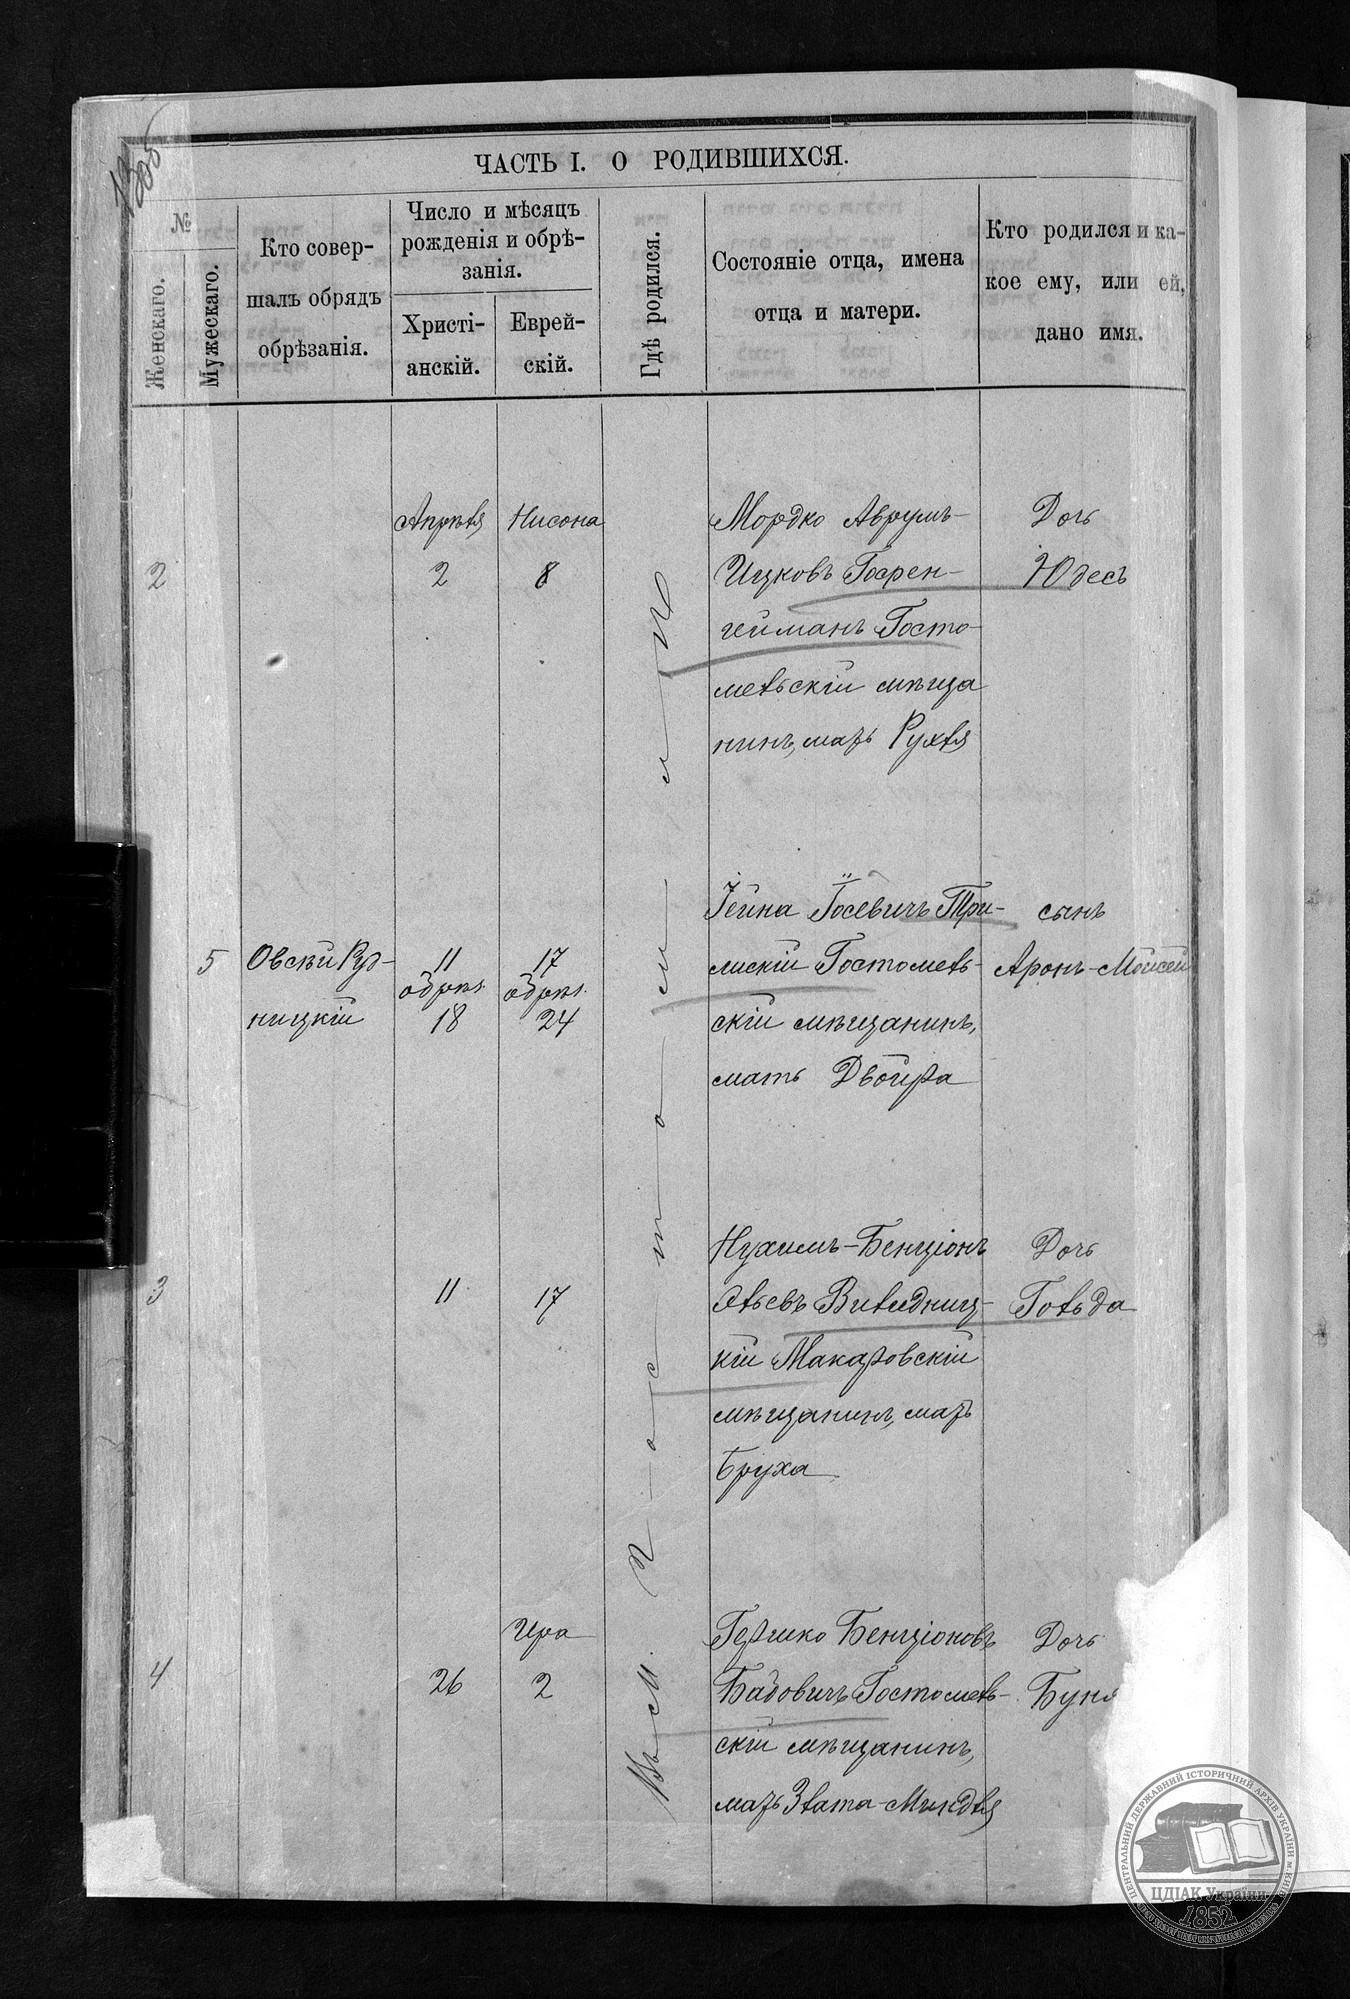 1305
ЧАСТЬ I. О РОДИВШИХСЯ.
№
Женскаго.
Мужескаго.
Кто совер-
шалъ обрядъ
обрѣзанія.
Число и мѣсяцъ
рожденія и обрѣ-
занія.
Христі-
анскій.
Еврей-
скій.
Гдѣ родился.
Состояніе отца, имена
отца и матери.
Кто родился и ка-
кое ему, или ей,
дано имя.
Въ м. Гостомлѣ
2
Апрѣля
2
Нисона
8
Мордко Аврумъ-
Ицковъ Гофрен-
гейманъ Госто-
мельскій мѣща
нинъ, мать Рухля
Дочь
Юдесъ
5
Овсѣй Руд-
ницкій
11
обрѣз.
18
17
обрѣз.
24
Іейна Іосевичъ Три-
лискій Гостомель-
скій мѣщанинъ,
мать Двойра
сынъ
Аронъ-Мойсей
3
11
17
Нухимъ-Бенціонъ
Виледниц-
кій Макаровскій
мѣщанинъ, мать
Бруха
Дочь
Гольда
4
26
Ира
2
Гершко Бенціоновъ
Бабовичъ Гостомель-
скій мѣщанинъ,
мать Злата-Миндля
Дочь
Буня
ЦЕНТРАЛЬНИЙ ДЕРЖАВНИЙ ІСТОРИЧНИЙ АРХІВ УКРАЇНИ М. КИЇВ
ЦДІАК України
1852